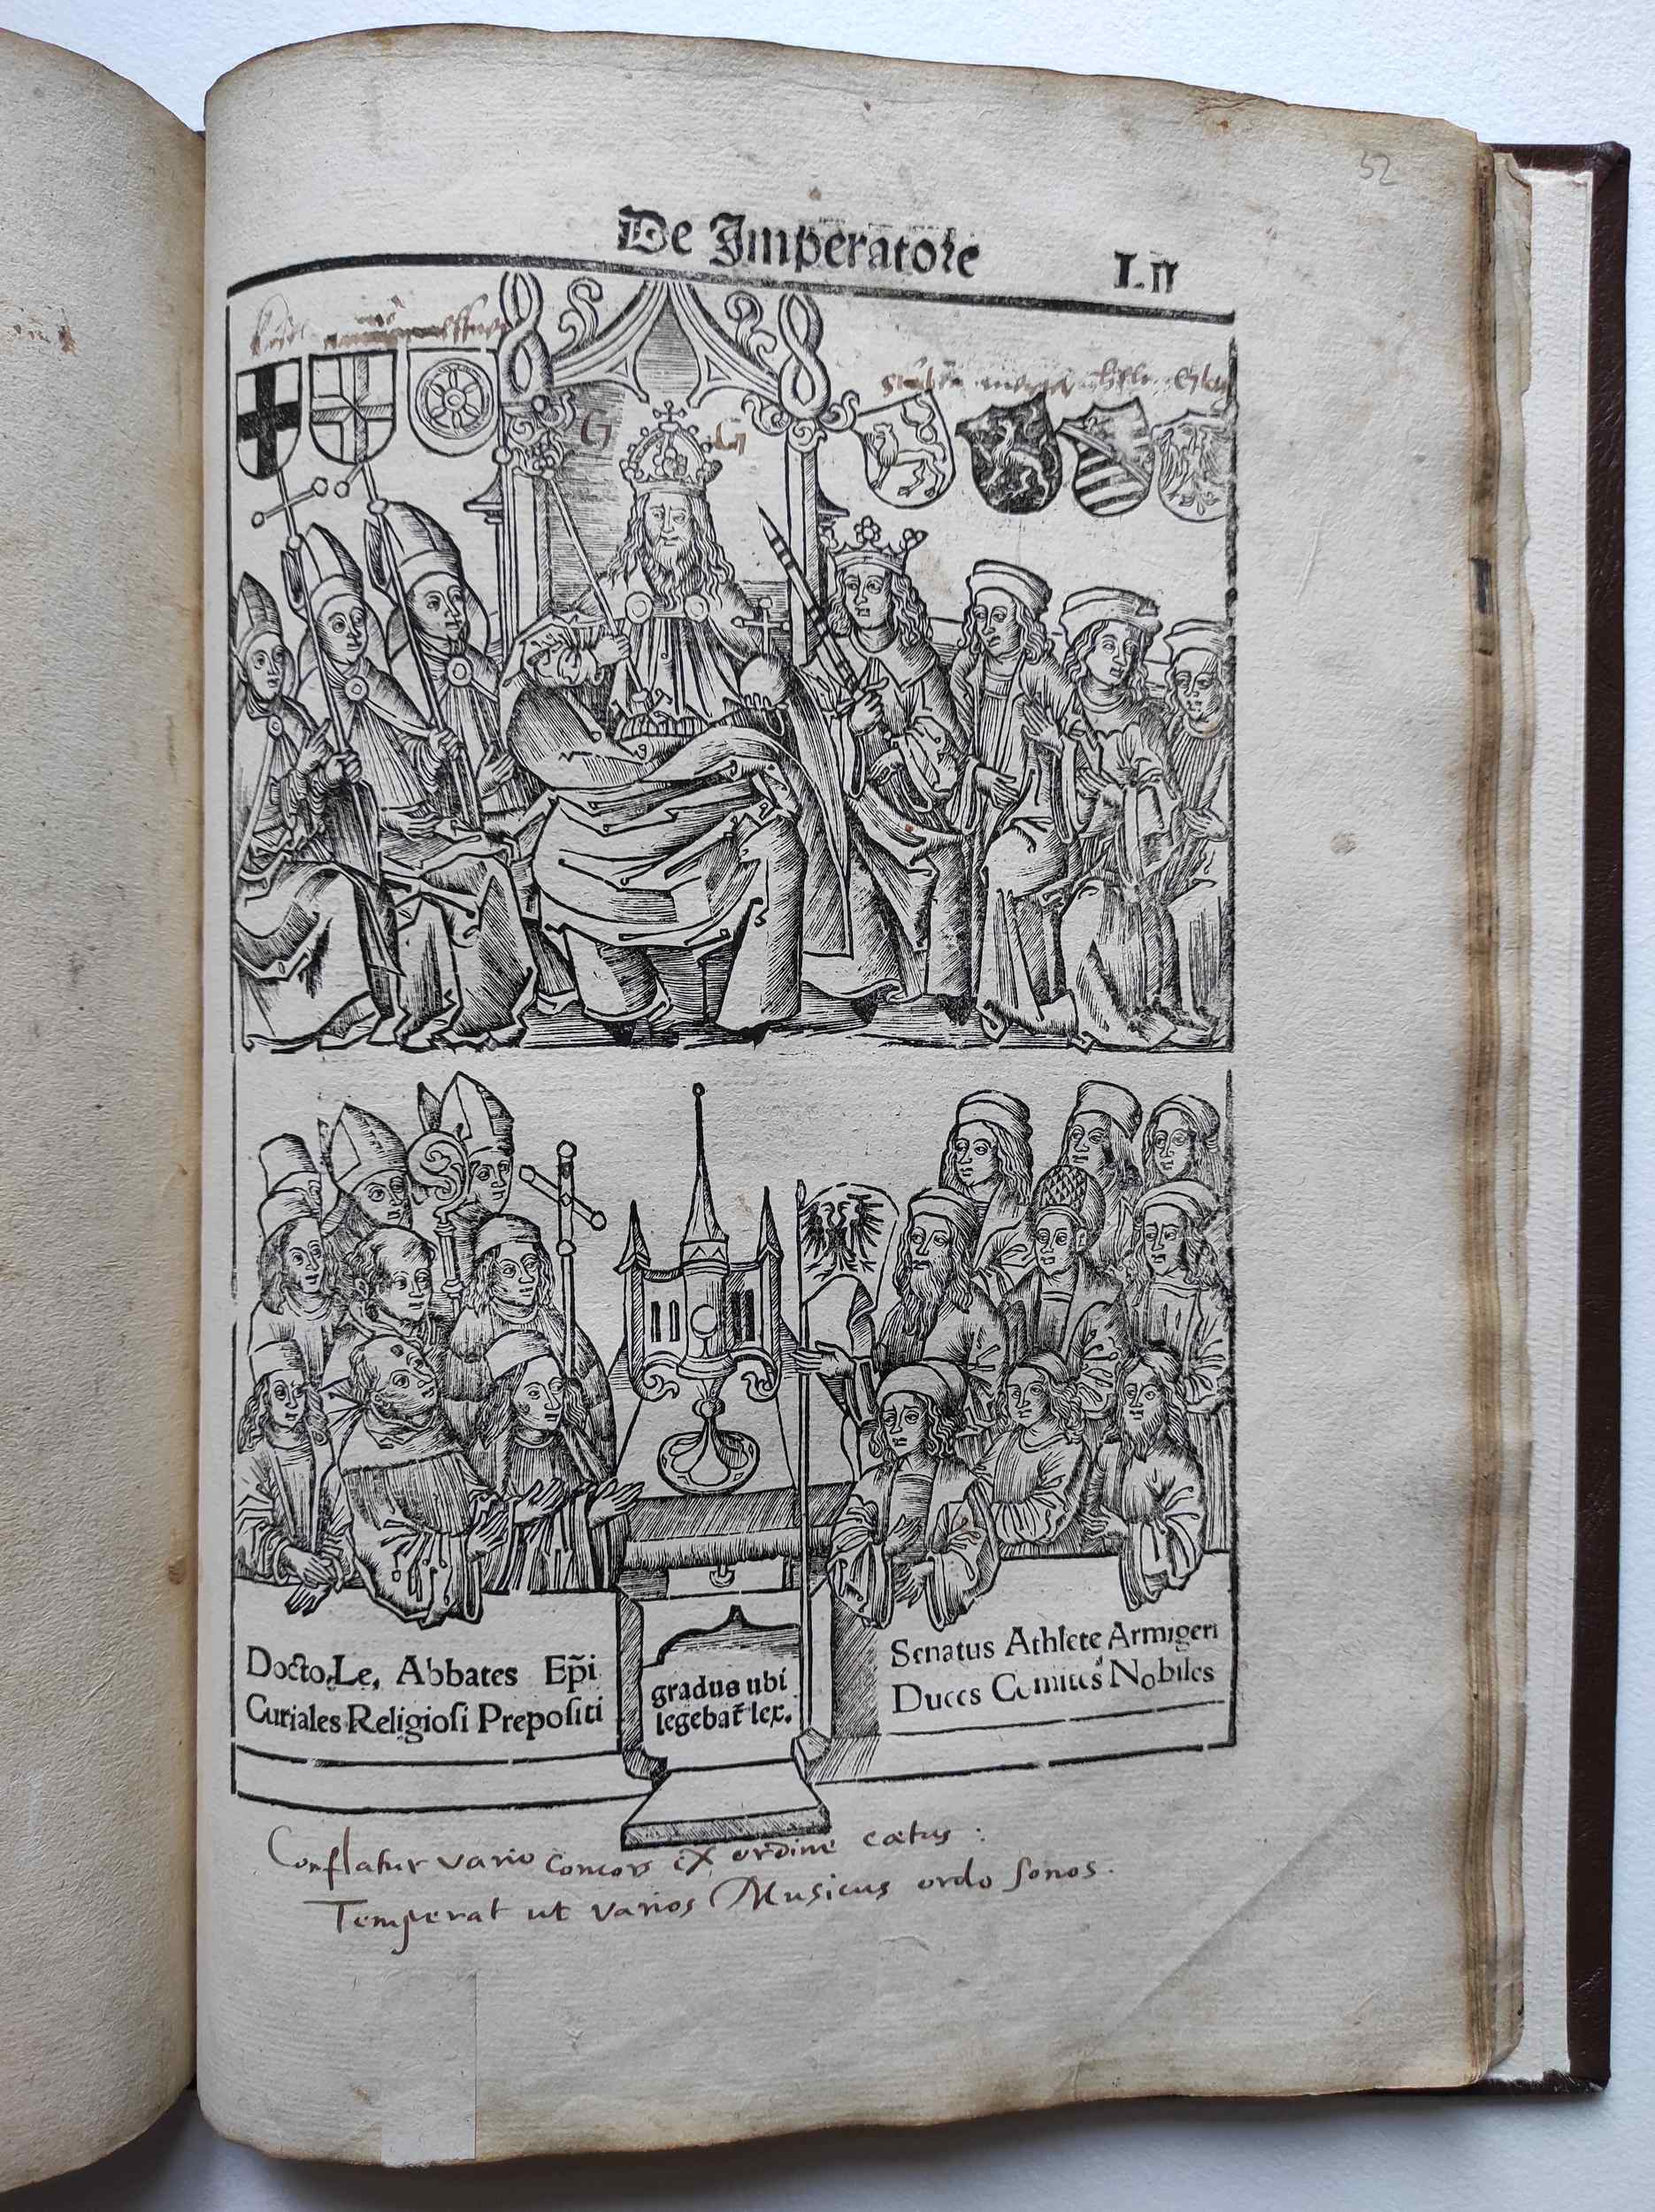 52
De Imperatore
LII
G G
Docto, Le, Abbates Ep̃i
Curiales Religiosi Prepositi
gradus ubi
legebat̃ lex.
Senatus Athlete Armigeri
Duces Comites Nobiles
Conflatur vario concors ex ordine cætus :
Temperat ut varios Musicus ordo sonos.